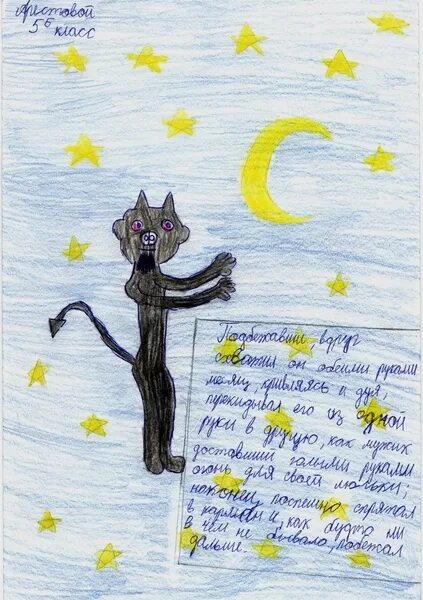 Аристовой
5б класс
Подбежавши, вдруг
схватил он обеими руками
месяц, кривляясь и дуя,
перекидывал его из одной
руки в другую, как мужик
доставший голыми руками
огонь для своей люльки;
наконец поспешно спрятал
в карман и, как будто ни
в чём не бывало, побежал
дальше.